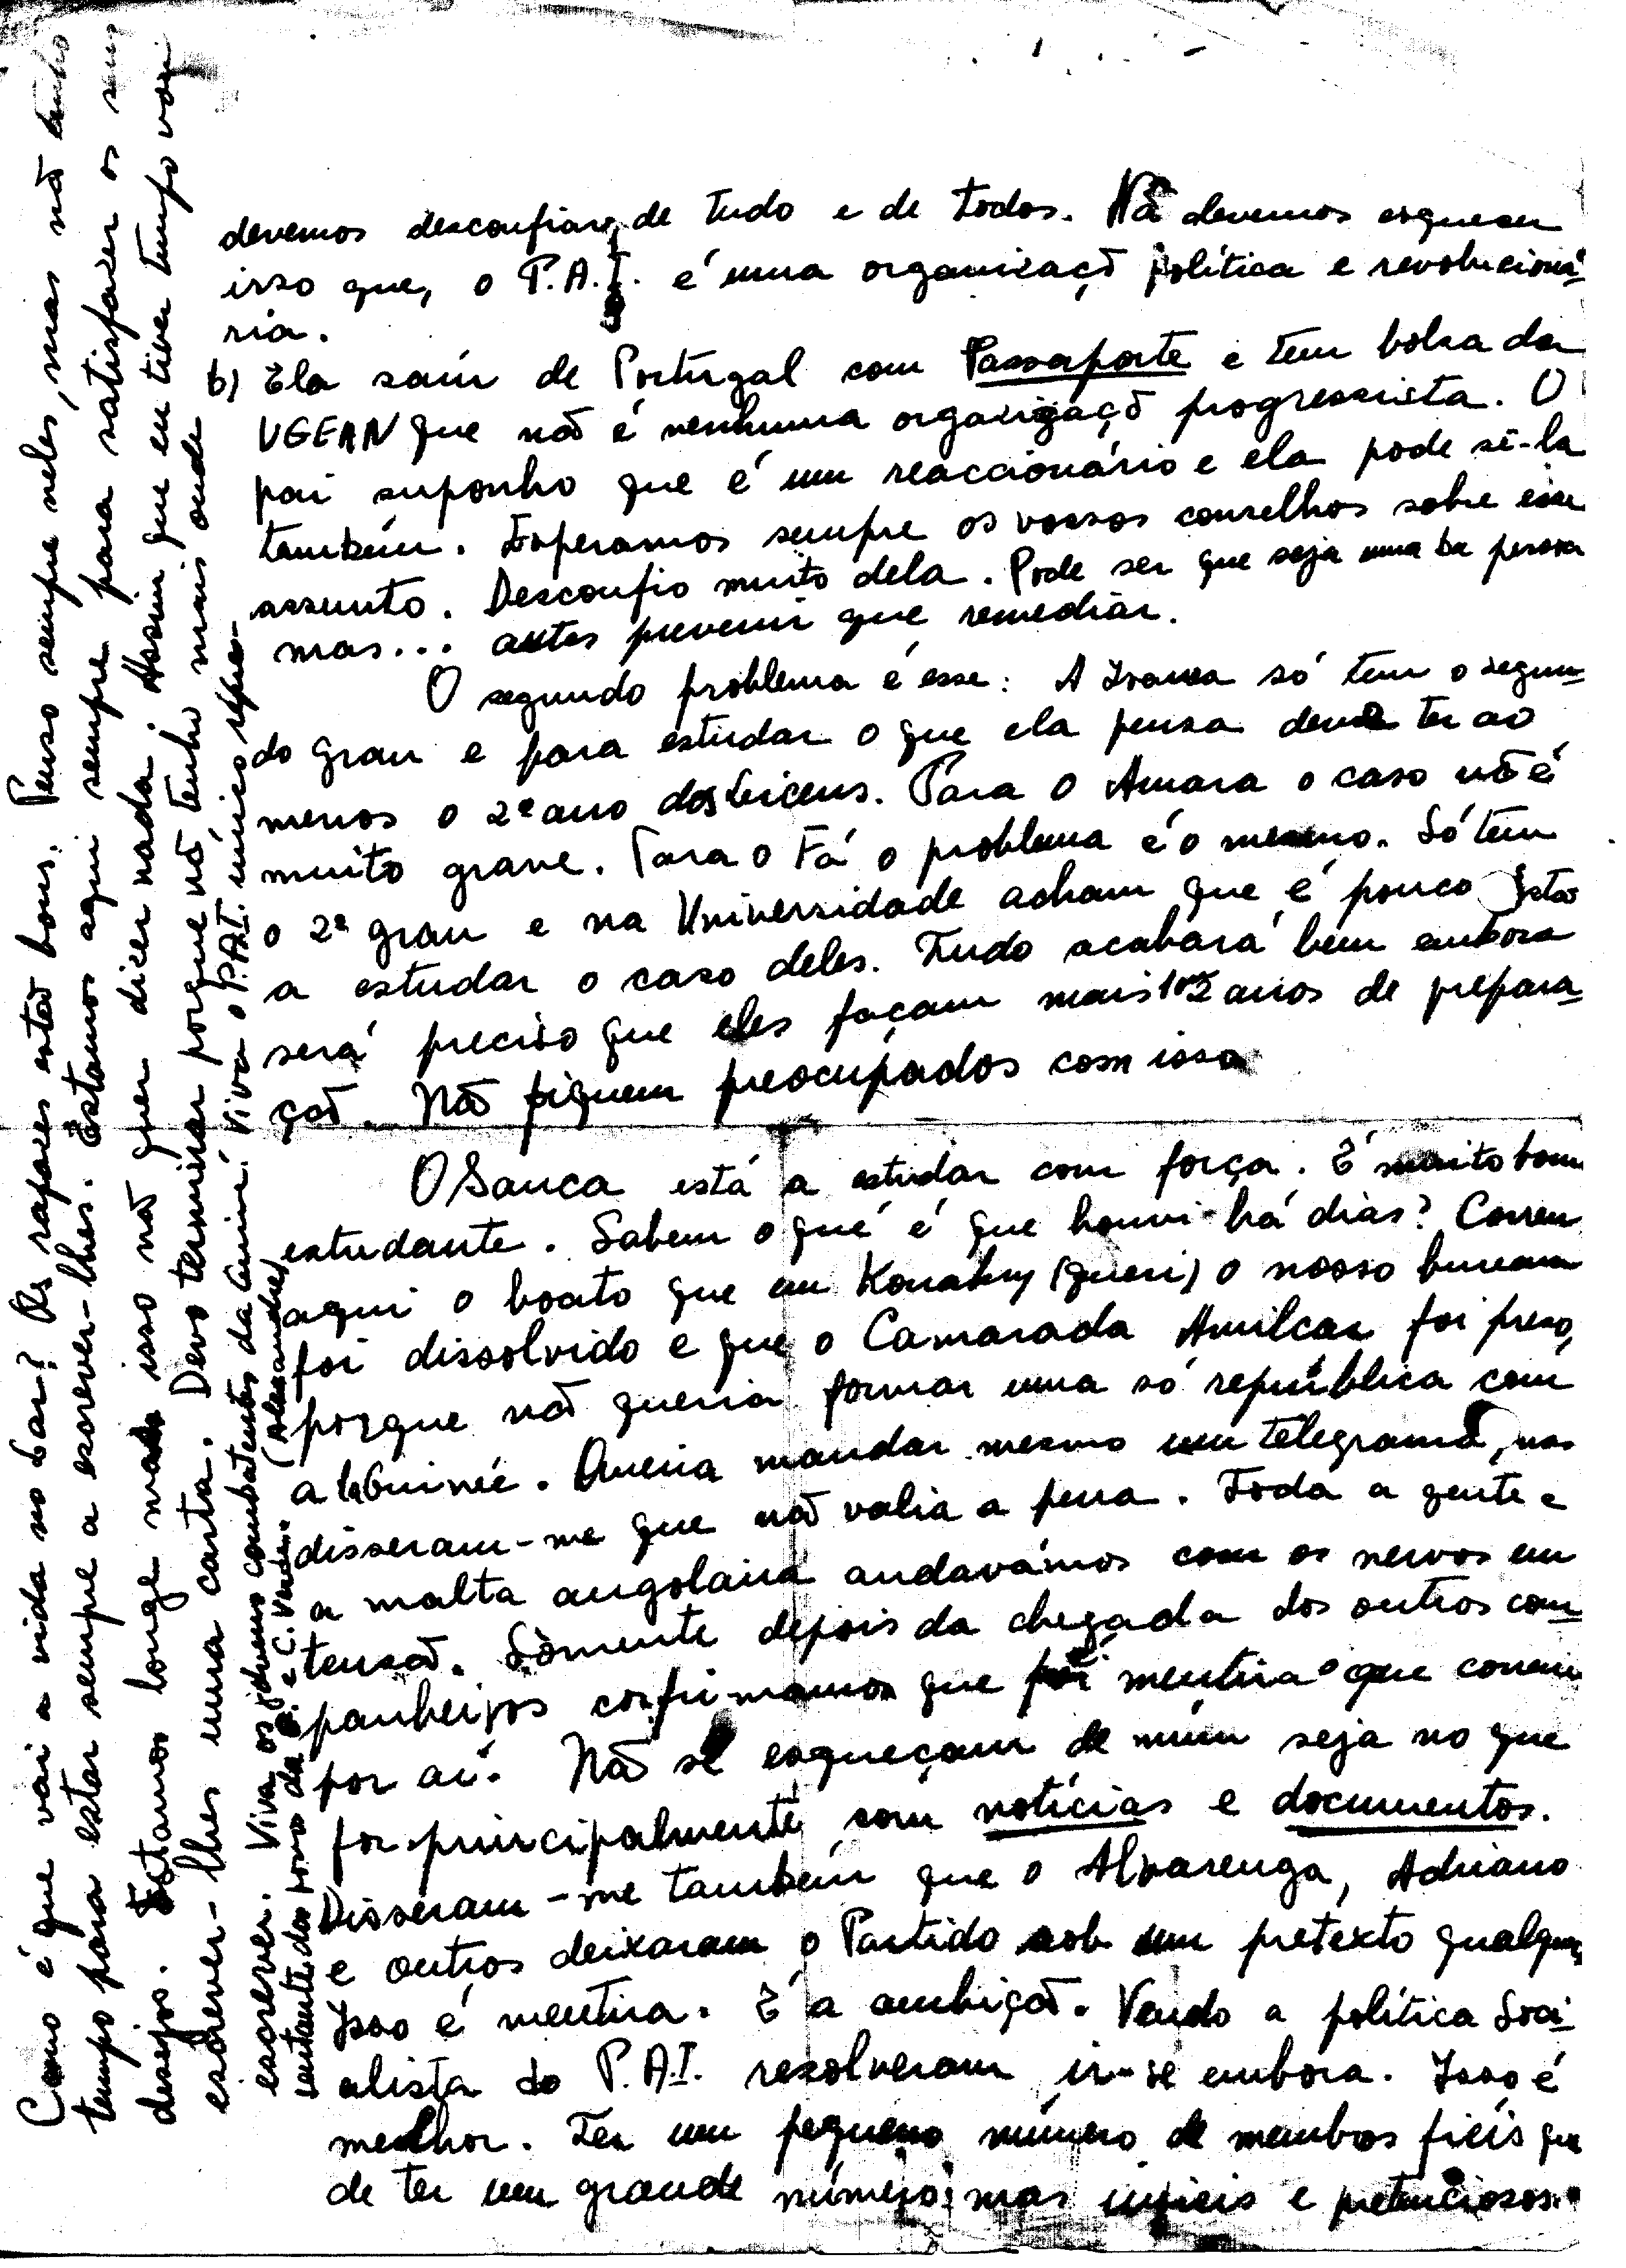 devemos desconfiar, de tudo e de todos. Nã devemos esquecer
isso que, o P.A.I. é uma organizaçõ política e revolucioná-
ria.
b) Ela saiu de Portugal com Passaporte e tem bolsa da
UGEAN que nõ é nenhuma organizaçõ progressista. O
pai suponho que é um reaccionário e ela pode sê-la
também. Esperamos sempre os vossos conselhos sobre esse
assunto. Desconfio muito dela. Pode ser que seja uma boa pessoa
mas... antes prevenir que remediar.
O segundo problema é esse: A Ivanea só tem o segun-
do grau e para estudar o que ela pensa deve ter ao
menos o 2º ano dos liceus. Para o Amara o caso nõ é
muito grave. Para o Fá o problema é o mesmo. Só tem
o 2º grau e na Universidade acham que é pouco. Estõ
a estudar o caso deles. Tudo acabará bem embora
será preciso que eles façam mais 1 ou 2 anos de prepara-
çõ. Nõ fiquem preocupados com isso
O Sanca está a estudar com força. É muito bom
estudante. Sabem o què é que houvi há dias? Correu
aqui o boato que em Konakry (Guéri) o nosso bureau
foi dissolvido e que o Camarada Amilcar foi preso,
porque nõ queria formar uma só república com
a la Guinée. Queria mandar mesmo um telegrama, mas
disseram-me que nõ valia a pena. Toda a gente e
a malta angolana andavámos com os nervos em
tensõ. Sòmente depois da chegada dos outros com-
panheiros confirmamos que foi mentira o que correu
por aí. Nõ se esqueçam de mim seja no que
for principalmente com notícias e documentos.
Disseram-me também que o Alvarenga, Adriano
e outros deixaram o Partido sob um pretexto qualquer
Isso é mentira. É a ambiçõ. Vendo a política Soci-
alista do P.A.I. resolveram ir-se embora. Isso é
melhor. Ter um pequeno número de membros fiéis que
de ter um grande número mas infieis e pretenciosos.
Como é que vai a vida no bar? Os rapazes estõ bons. Penso sempre neles, mas nõ tenho
tempo para estar sempre a escrever-lhes. Estamos aqui sempre para satisfazer os seus
desejos. Estamos longe mas isso nõ quer dizer nada. Assim que eu tiver tempo vou
escrever-lhes uma carta. Devo terminar porque nõ tenho mais onde
escrever. Viva os jovens combatentes da Guiné! Viva o P.A.I. único repre-
sentante do povo da G. e C. Verde. (Alexandre)